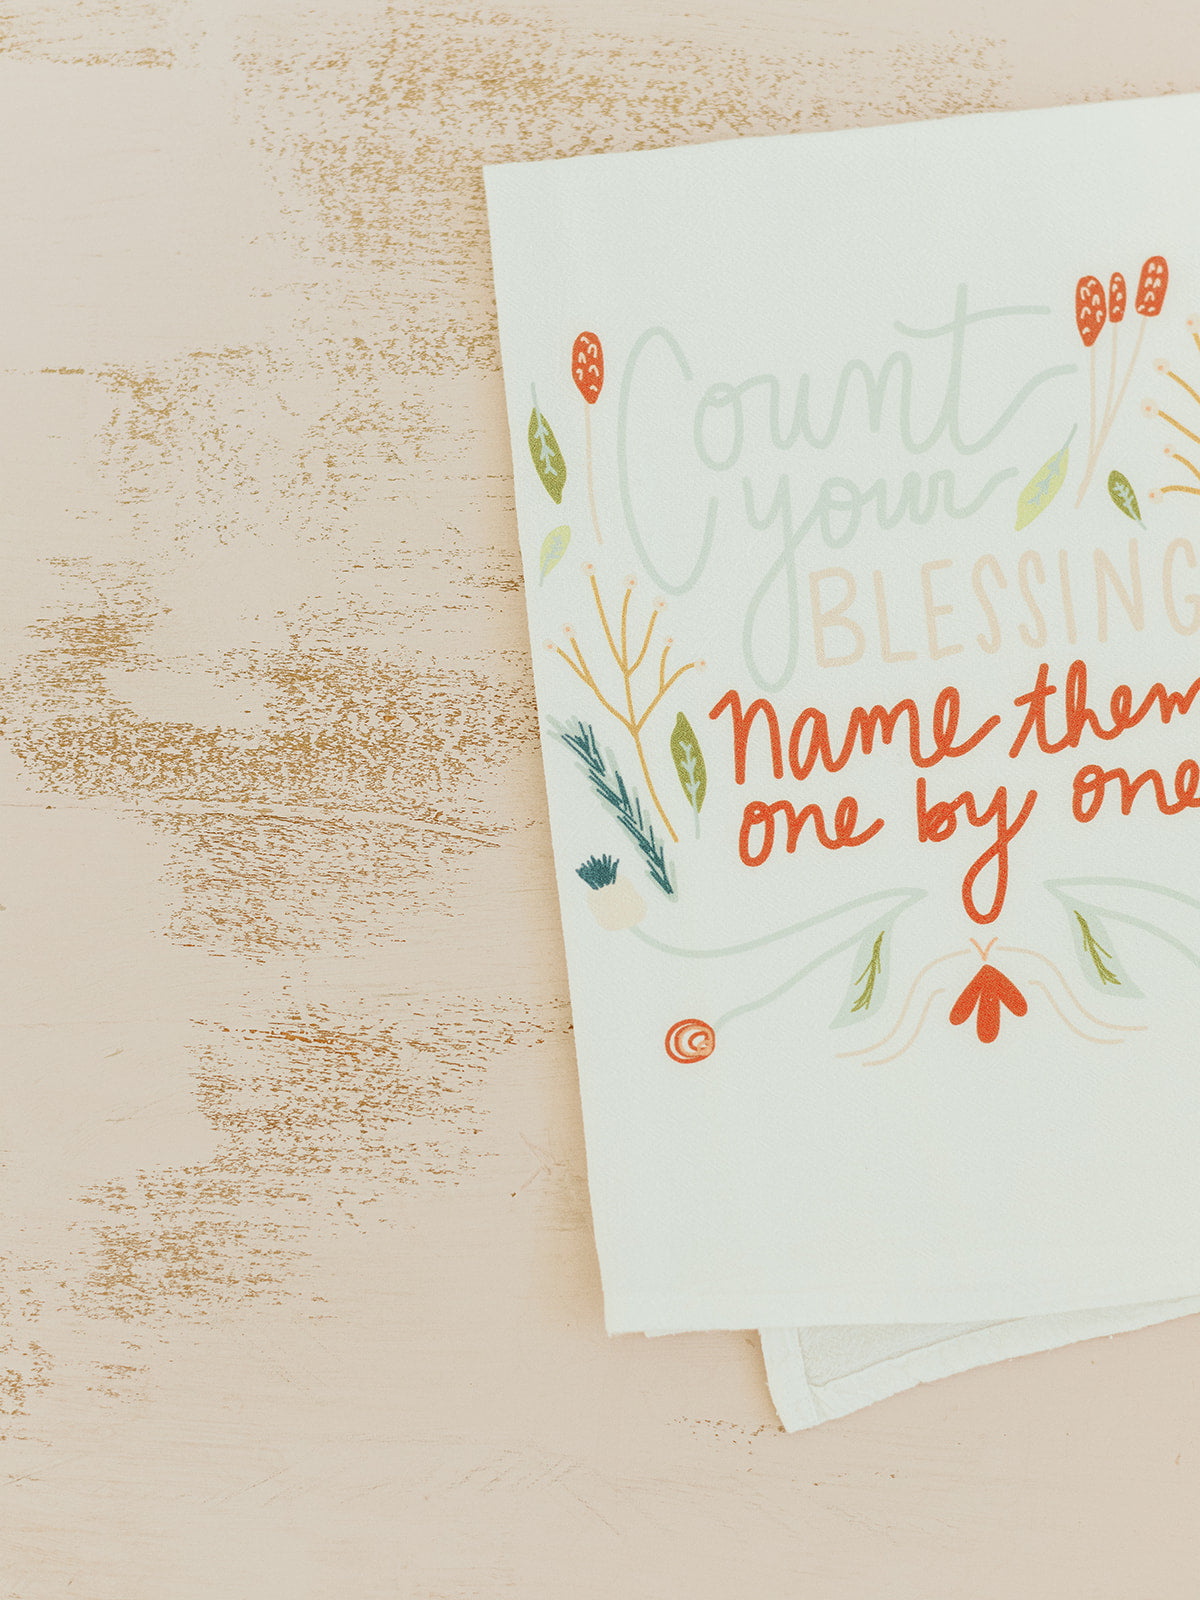 Count
your
BLESSING
name them
one by one